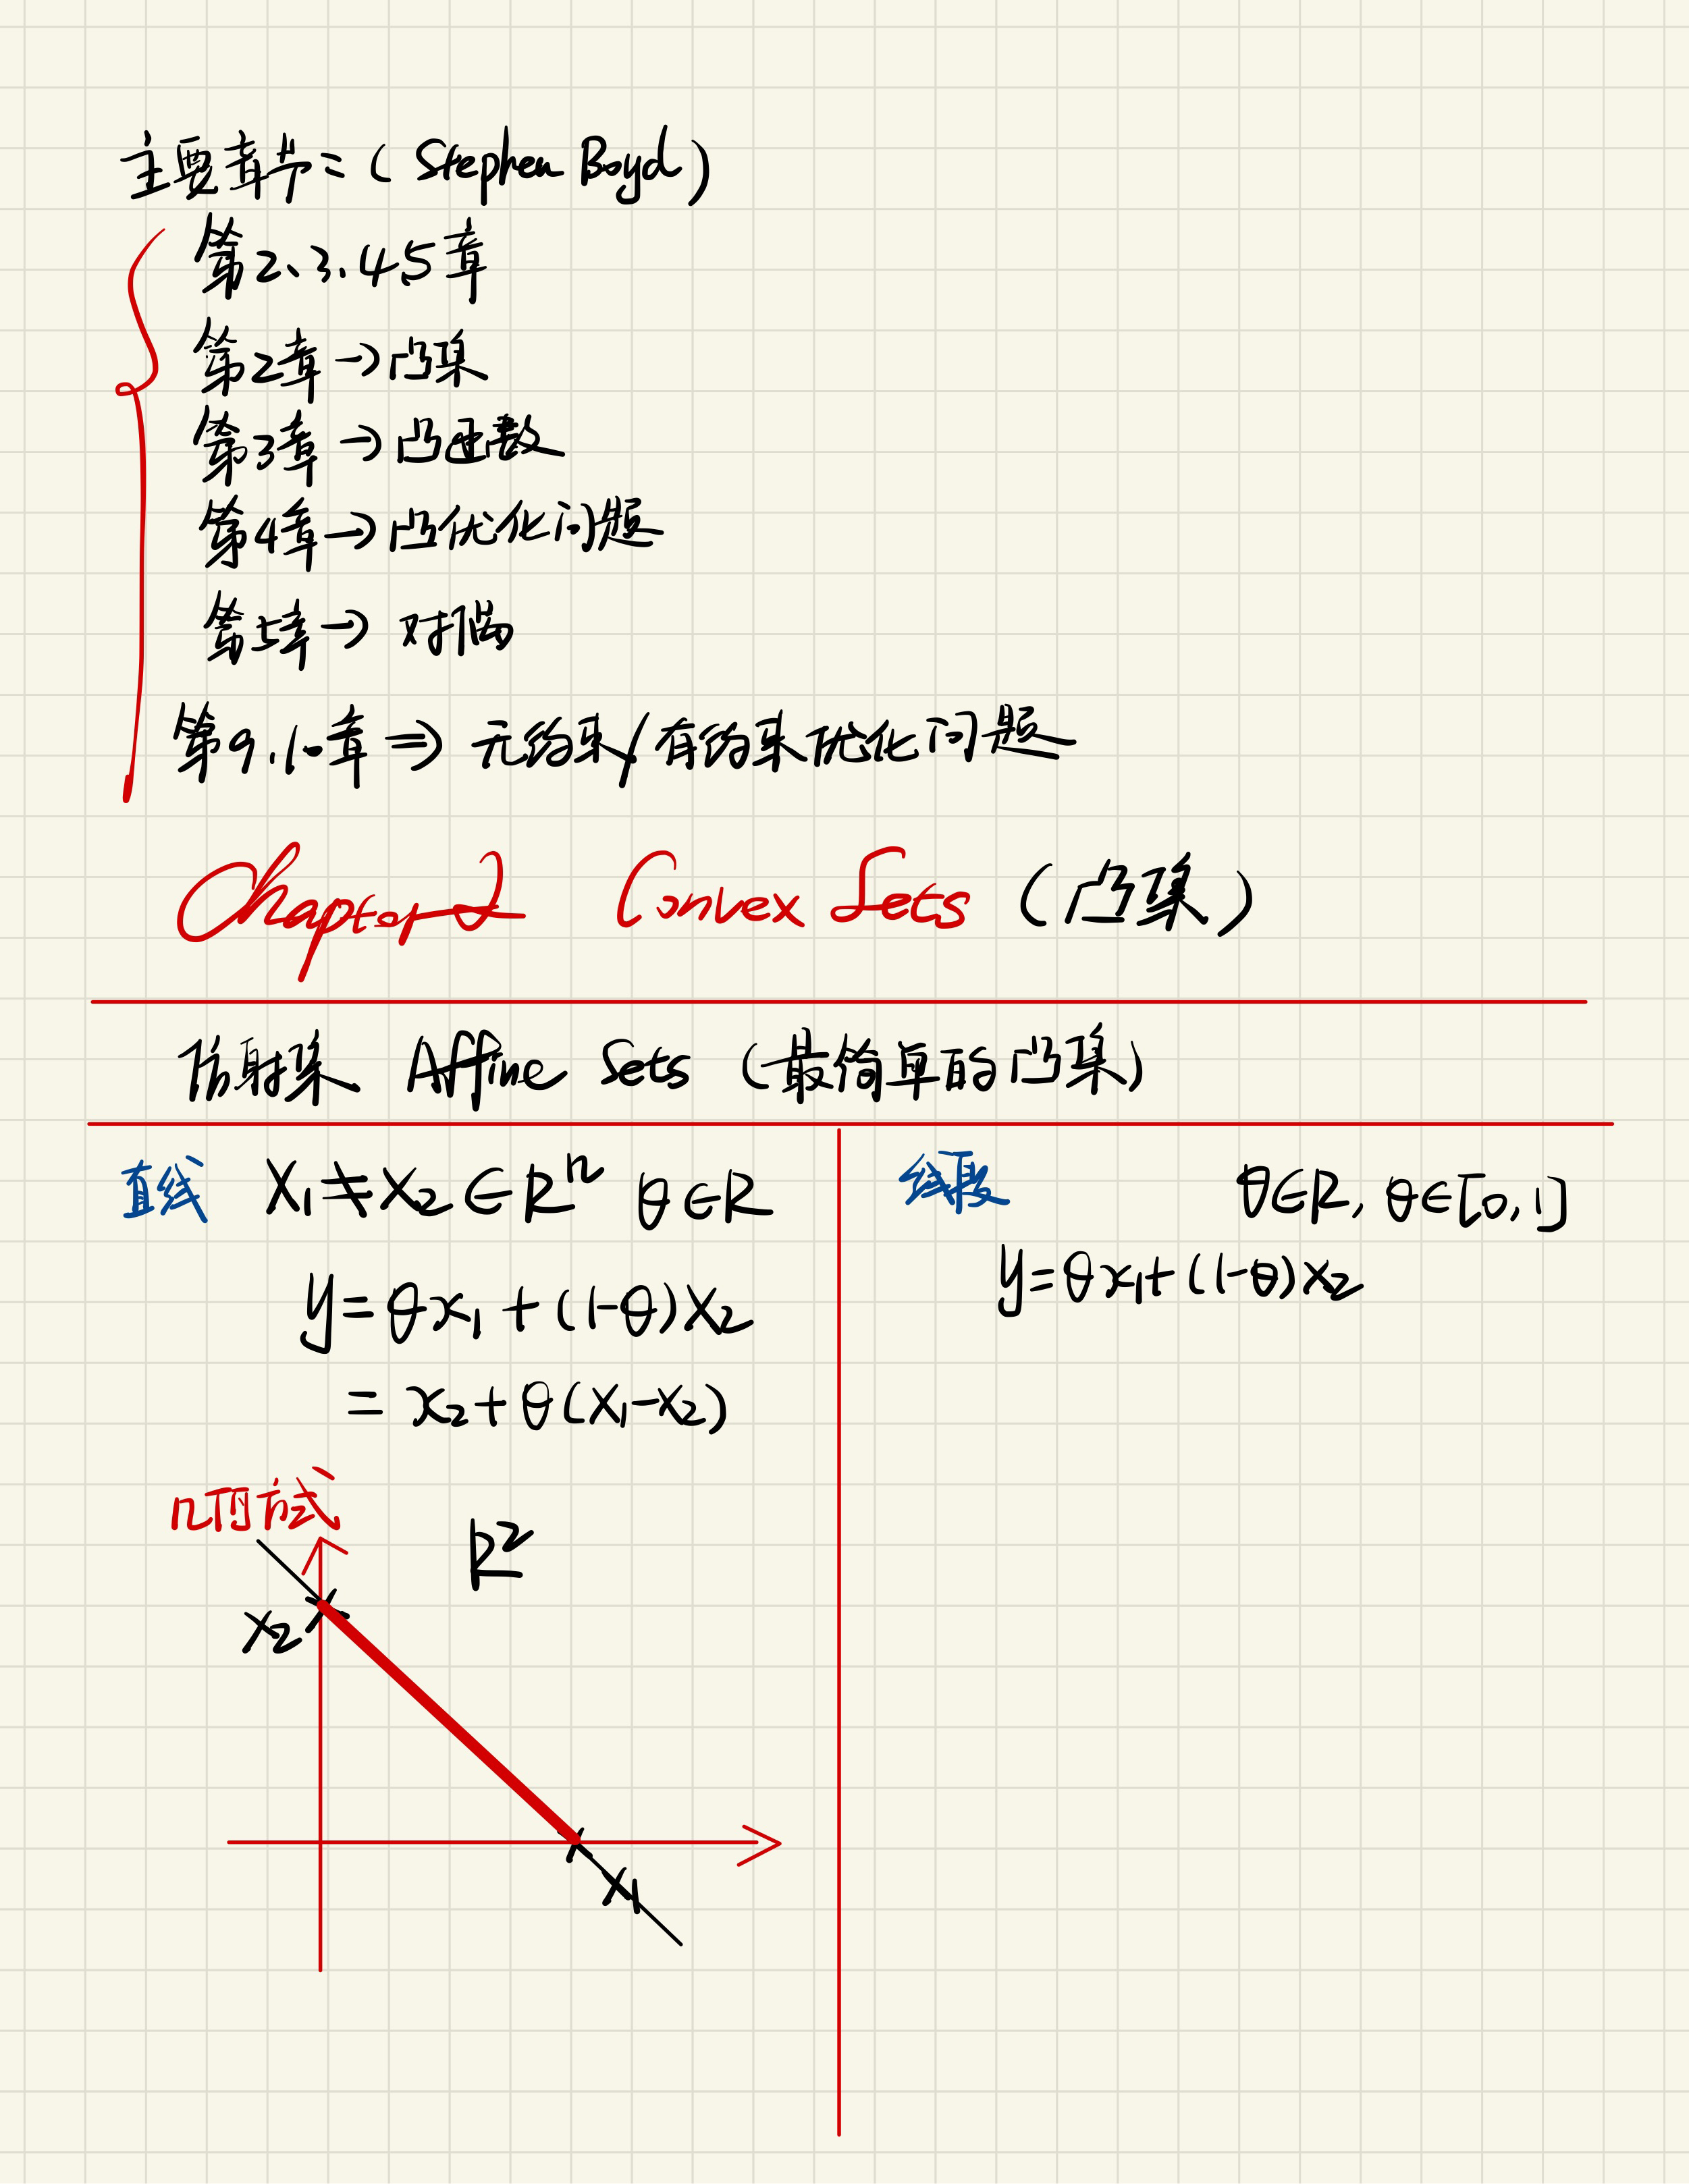 主要章节：(Stephen Boyd)
第2、3.4.5章
第2章→凸集
第3章→凸函数
第4章→凸优化问题
第5章→对偶
第9.10章⇒无约束/有约束优化问题
Chapter 2 Convex Sets (凸集)
仿射集 Affine Sets (最简单的凸集)
直线 X₁≠X₂∈Rⁿ θ∈R
y=θx₁+(1-θ)X₂
=x₂+θ(X₁-X₂)
R²
X₂
X₁
线段 θ∈R, θ∈[0,1]
y=θx₁+(1-θ)x₂